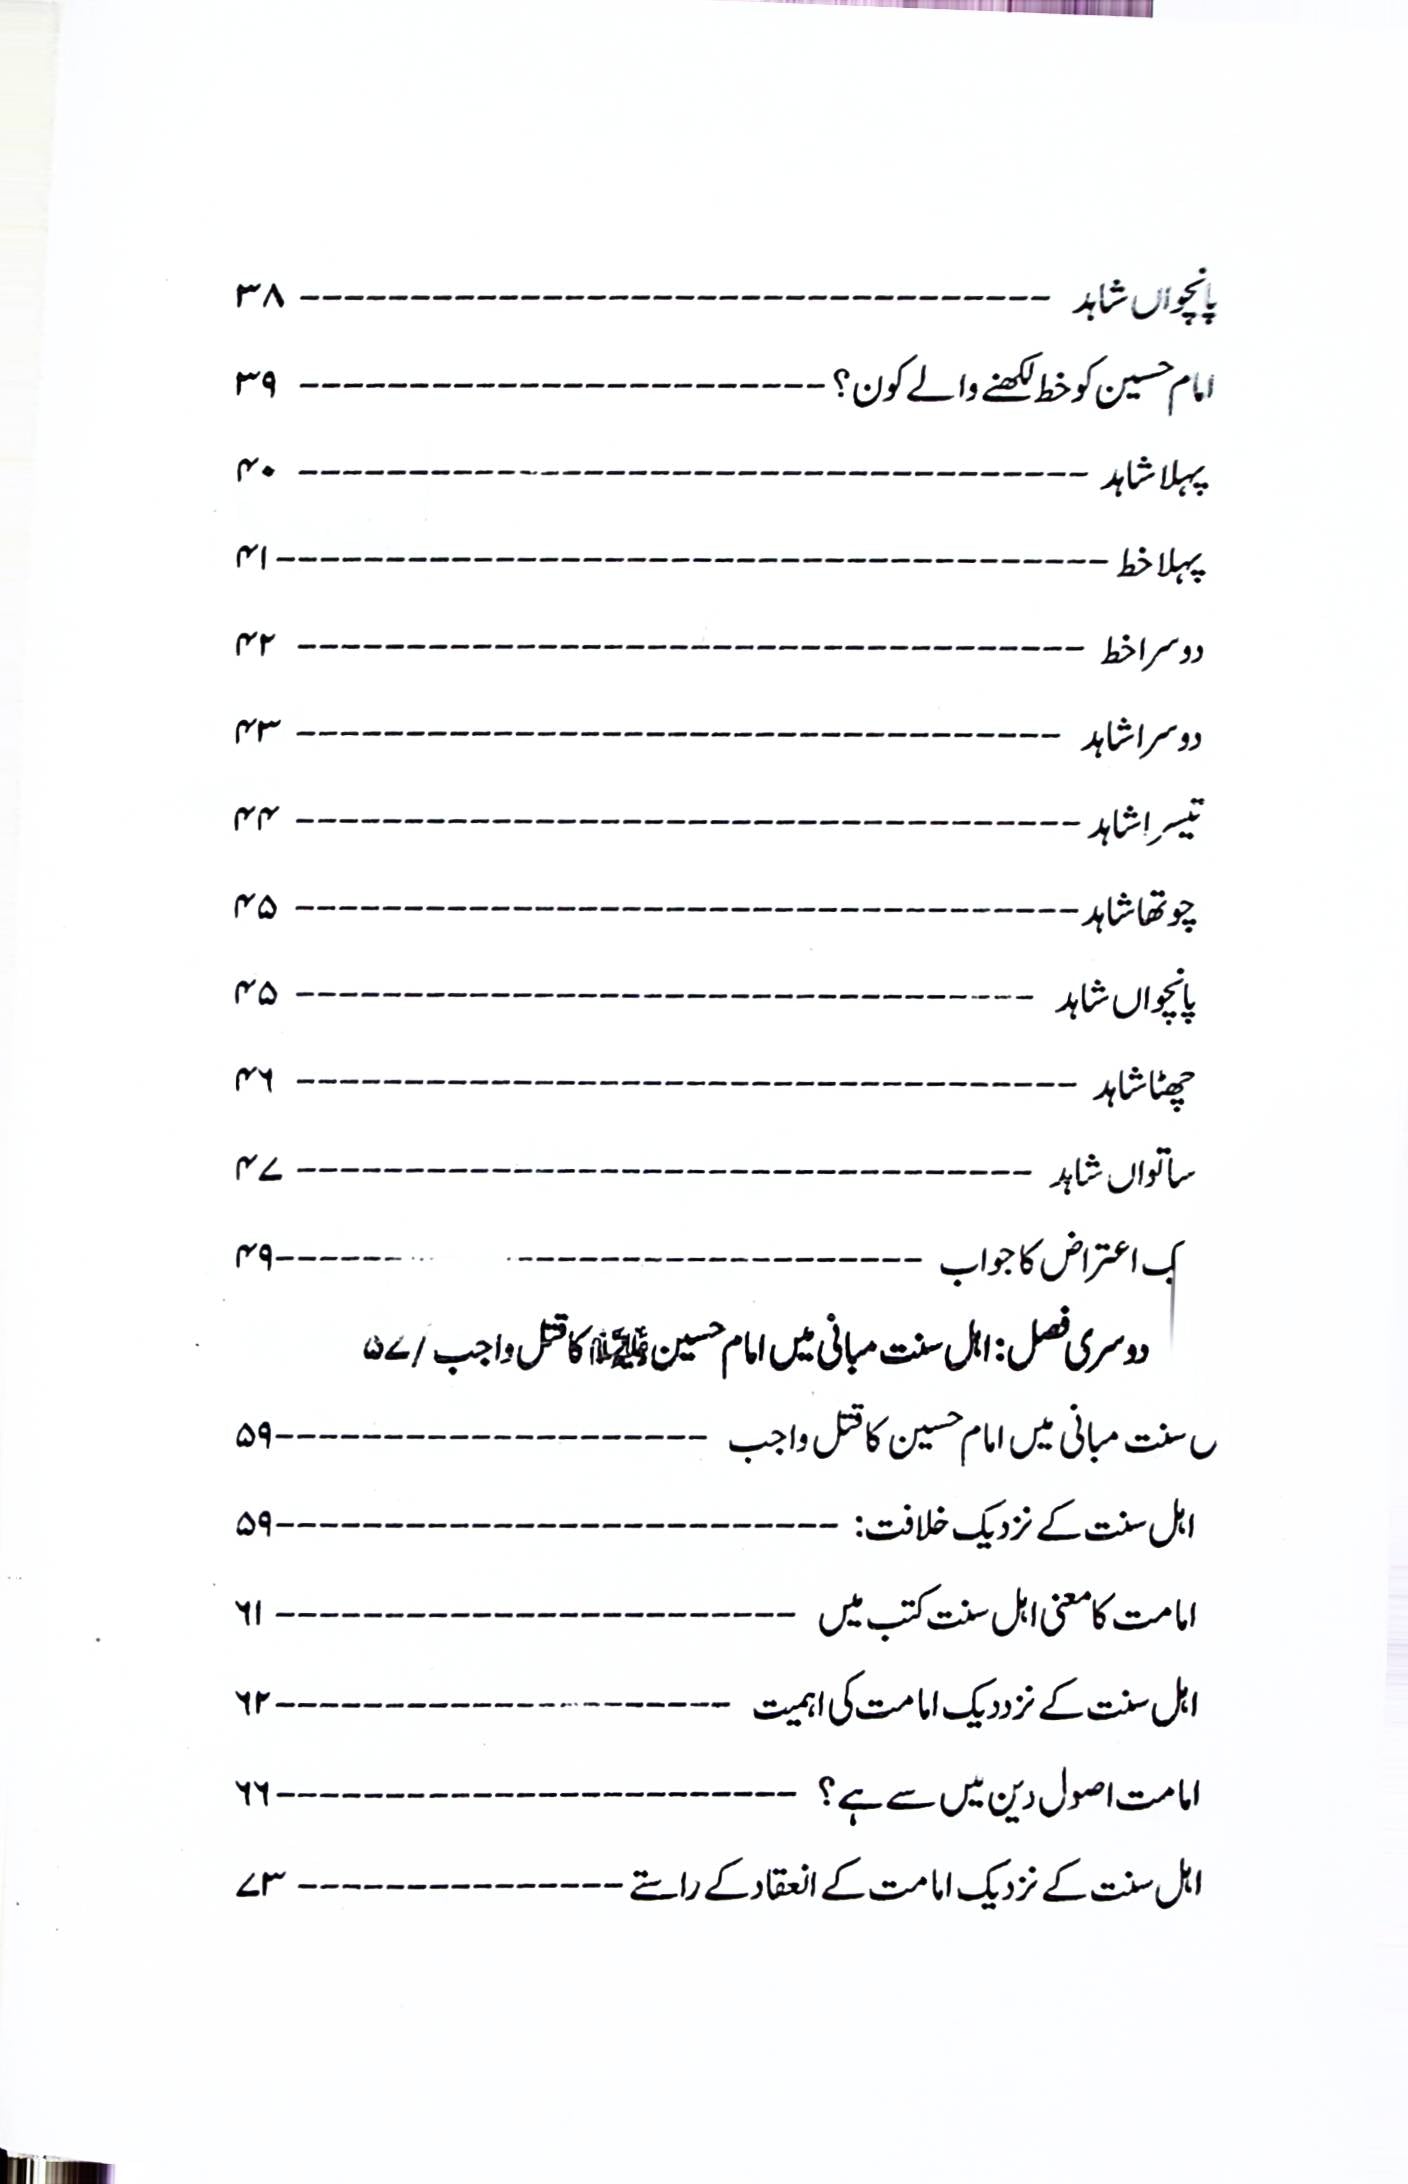 پانچواں شاہد ---------------------------------- ۳۸
امام حسین کو خط لکھنے والے کون؟ ------------------------ ۳۹
پہلا شاہد ------------------------------------ ۴۰
پہلا خط -------------------------------------- ۴۱
دوسرا خط ------------------------------------ ۴۲
دوسرا شاہد ----------------------------------- ۴۳
تیسرا شاہد ------------------------------------ ۴۴
چوتھا شاہد ------------------------------------ ۴۵
پانچواں شاہد ---------------------------------- ۴۵
چھٹا شاہد ------------------------------------ ۴۶
ساتواں شاہد ---------------------------------- ۴۷
اعتراض کا جواب ------------------- ------ ۴۹
دوسری فصل: اہل سنت مبانی میں امام حسین علیہ السلام کا قتل واجب / ۵۷
سنت مبانی میں امام حسین کا قتل واجب -------------------- ۵۹
اہل سنت کے نزدیک خلافت: -------------------------- ۵۹
امامت کا معنی اہل سنت کتب میں ------------------------ ۶۱
اہل سنت کے نزددیک امامت کی اہمیت --------------------- ۶۲
امامت اصول دین میں سے ہے؟ ------------------------ ۶۶
اہل سنت کے نزدیک امامت کے انعقاد کے راستے --------------- ۷۳